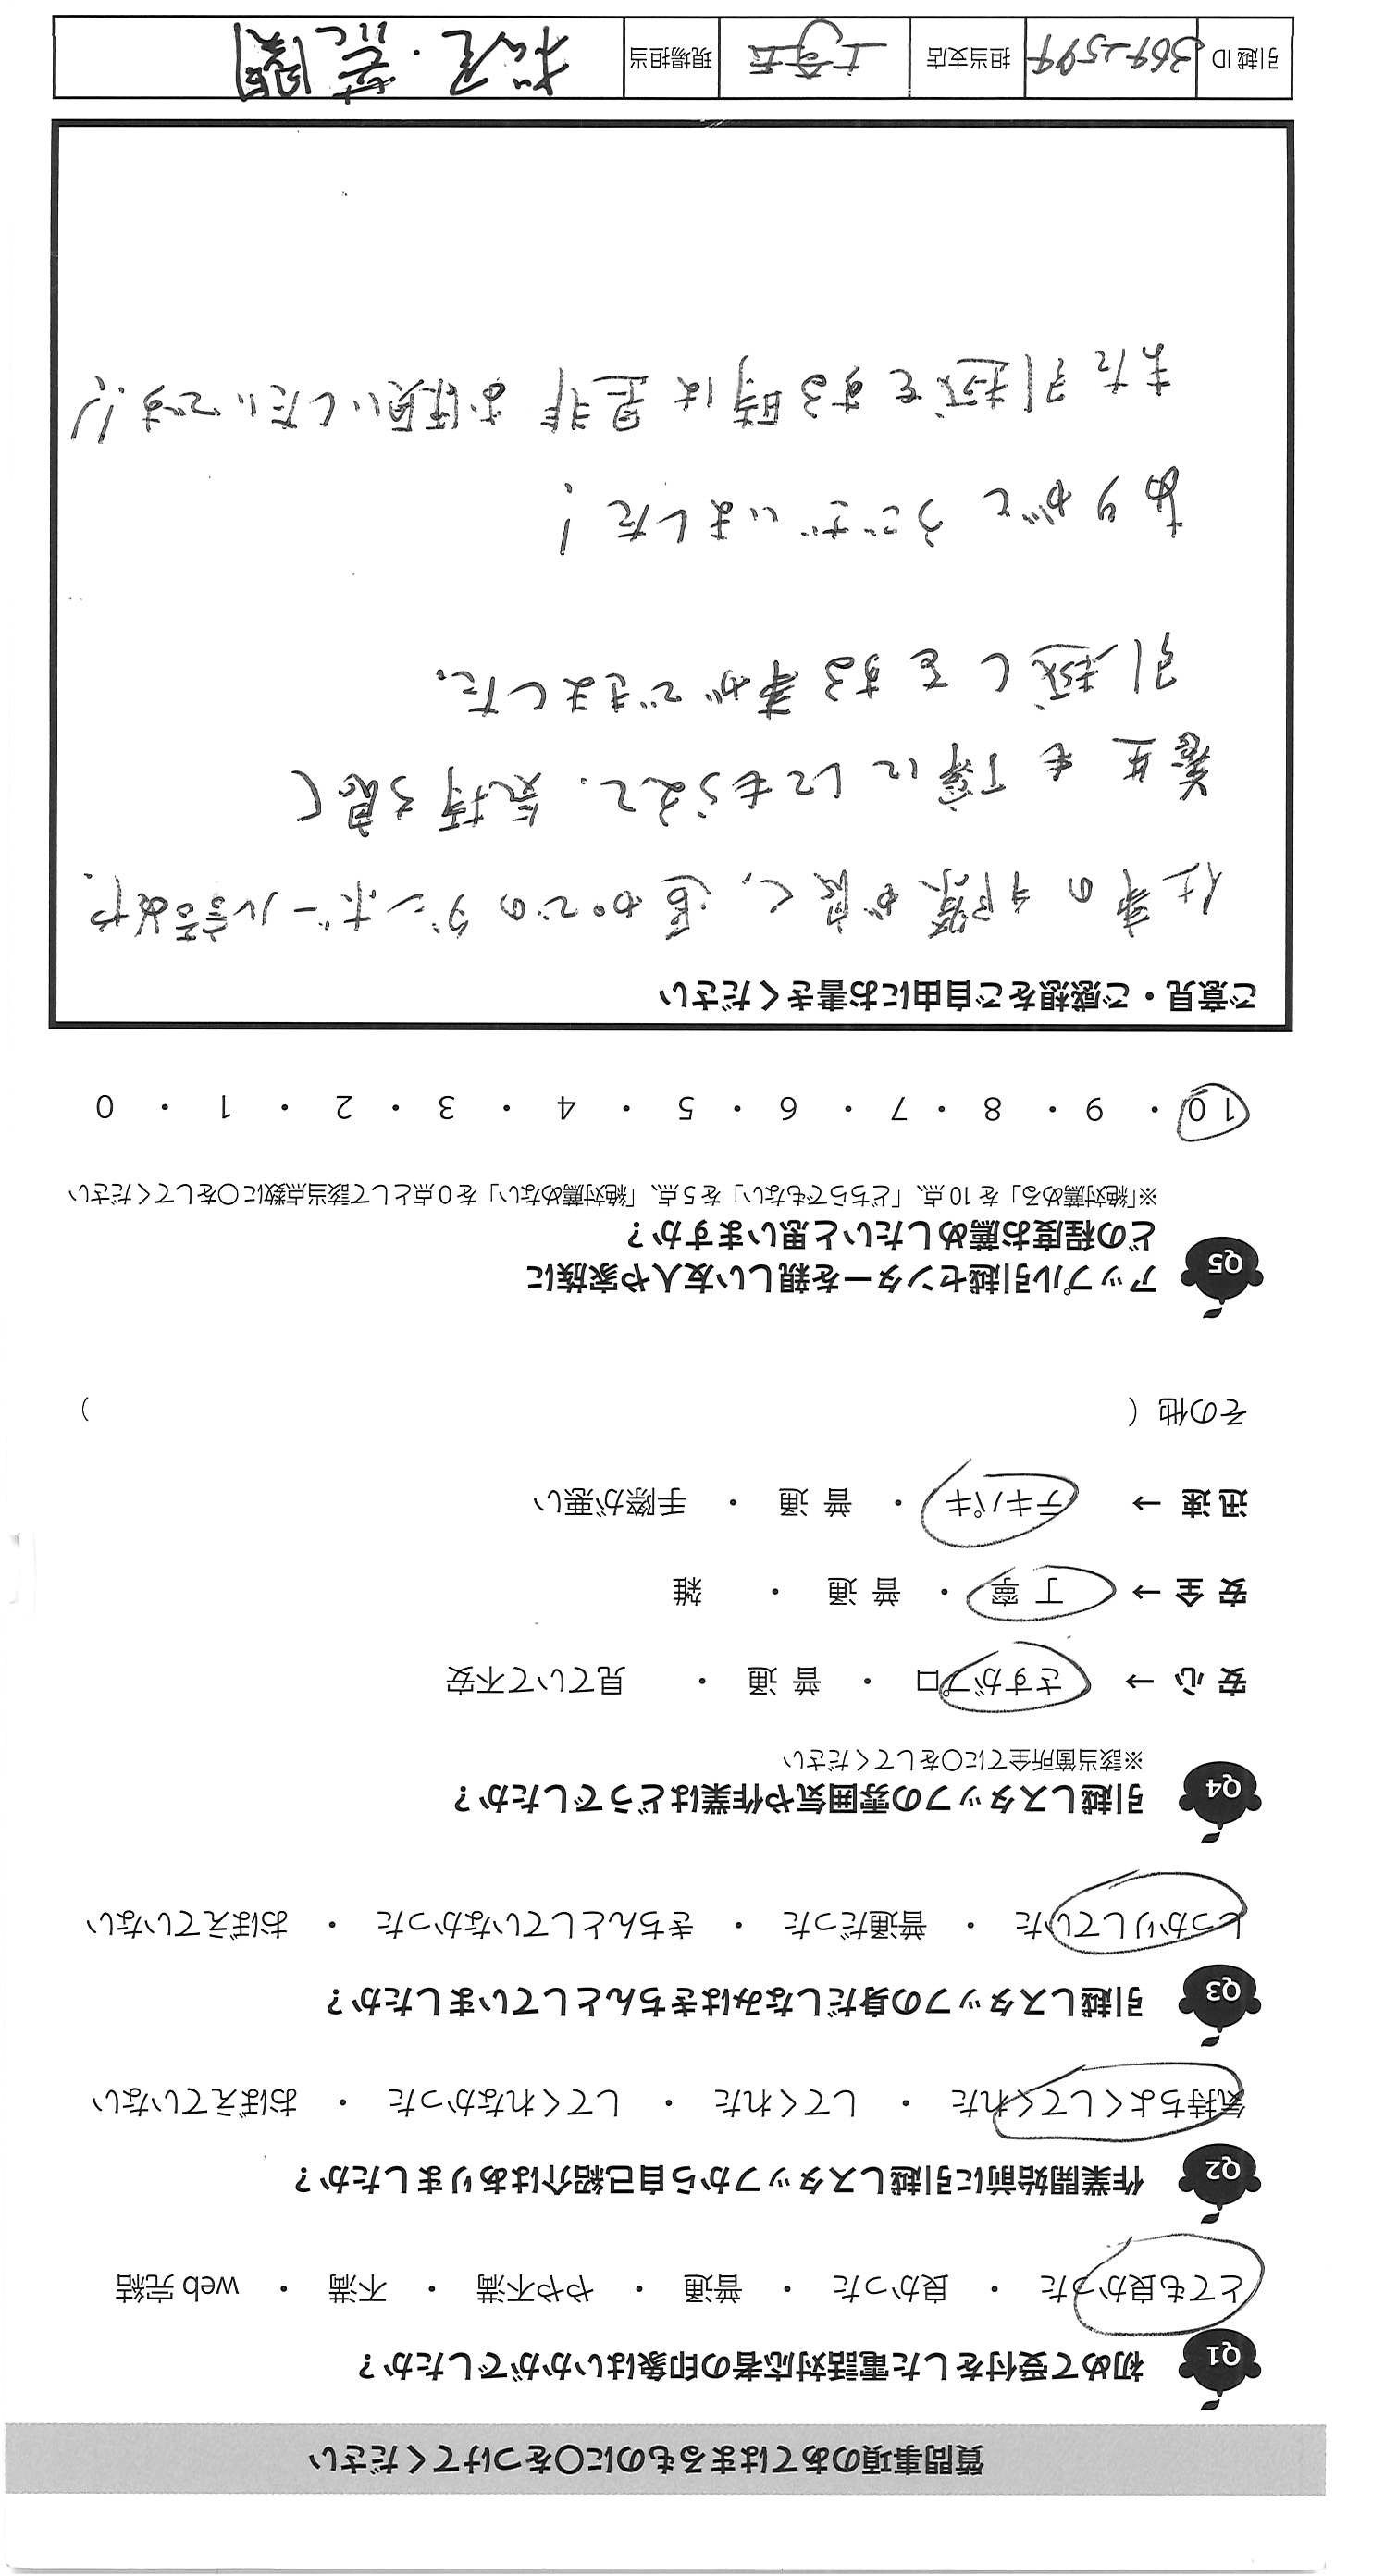 質問事項のあてはまるものに〇をつけてください
Q1 初めて受付をした電話対応者の印象はいかがでしたか？
とても良かった ・ 良かった ・ 普通 ・ やや不満 ・ 不満 ・ web 完結
Q2 作業開始前に引越しスタッフから自己紹介はありましたか？
気持ちよくしてくれた ・ してくれた ・ してくれなかった ・ おぼえていない
Q3 引越しスタッフの身だしなみはきちんとしていましたか？
しっかりしていた ・ 普通だった ・ きちんとしていなかった ・ おぼえていない
Q4 引越しスタッフの雰囲気や作業はどうでしたか？
※該当箇所全てに〇をしてください
安心 → さすがプロ ・ 普通 ・ 見ていて不安
安全 → 丁寧 ・ 普通 ・ 雑
迅速 → テキパキ ・ 普通 ・ 手際が悪い
その他（ ）
Q5 アップル引越センターを親しい友人や家族に
どの程度お薦めしたいと思いますか？
※「絶対薦める」を 10 点、「どちらでもない」を 5 点、「絶対薦めない」を 0 点として該当点数に〇をしてください
10 ・ 9 ・ 8 ・ 7 ・ 6 ・ 5 ・ 4 ・ 3 ・ 2 ・ 1 ・ 0
ご意見・ご感想をご自由にお書きください
仕事の手際が良く、速かでのダンボール詰めや、
養生も丁寧にしてもらえて、気持ち良く
引越しをする事ができました。
ありがとうございました！
また引越をする時は是非お願いしたいです!!
引越 ID 担当支店 現場担当 松尾・